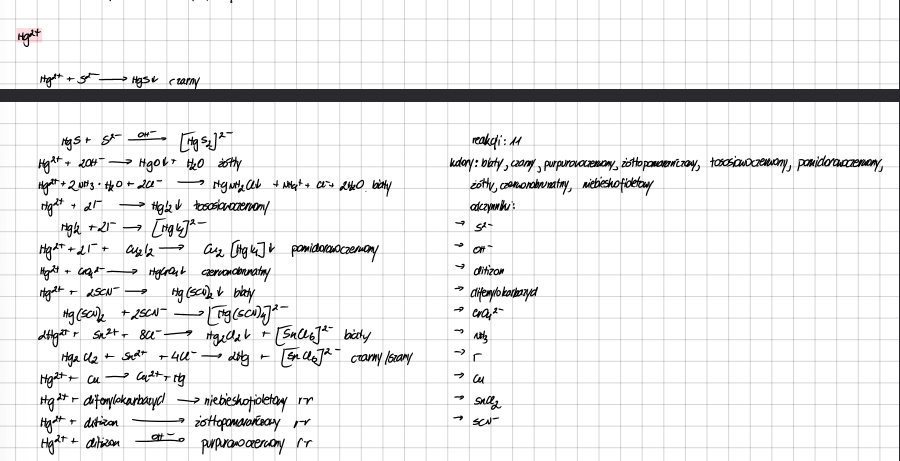 Hg²⁺
Hg²⁺ + S²⁻ ⟶ HgS↓ czarny
HgS + S²⁻ —OH⁻→ [HgS₂]²⁻
Hg²⁺ + 2OH⁻ ⟶ HgO↓ + H₂O żółty
Hg²⁺ + 2NH₃·H₂O + 2Cl⁻ ⟶ HgNH₂Cl↓ + NH₄⁺ + Cl⁻ + 2H₂O biały
Hg²⁺ + 2I⁻ ⟶ HgI₂↓ łososiowoczerwony
HgI₂ + 2I⁻ ⟶ [HgI₄]²⁻
Hg²⁺ + 2I⁻ + Cu₂I₂ ⟶ Cu₂[HgI₄]↓ pomidorowoczerwony
Hg²⁺ + CrO₄²⁻ ⟶ HgCrO₄↓ czerwonobrunatny
Hg²⁺ + 2SCN⁻ ⟶ Hg(SCN)₂↓ biały
Hg(SCN)₂ + 2SCN⁻ ⟶ [Hg(SCN)₄]²⁻
2Hg²⁺ + Sn²⁺ + 8Cl⁻ ⟶ Hg₂Cl₂↓ + [SnCl₆]²⁻ biały
Hg₂Cl₂ + Sn²⁺ + 4Cl⁻ ⟶ 2Hg + [SnCl₆]²⁻ czarny/szary
Hg²⁺ + Cu ⟶ Cu²⁺ + Hg
Hg²⁺ + difenylokarbazyd ⟶ niebieskofioletowy r-r
Hg²⁺ + ditizon ⟶ żółtopomarańczowy r-r
Hg²⁺ + ditizon —OH⁻→ purpurowoczerwony r-r
reakcji: 11
kolory: biały, czarny, purpurowoczerwony, żółtopomarańczowy, łososiowoczerwony, pomidorowoczerwony,
żółty, czerwonobrunatny, niebieskofioletowy
odczynniki:
→ S²⁻
→ OH⁻
→ ditizon
→ difenylokarbazyd
→ CrO₄²⁻
→ NH₃
→ I⁻
→ Cu
→ SnCl₂
→ SCN⁻